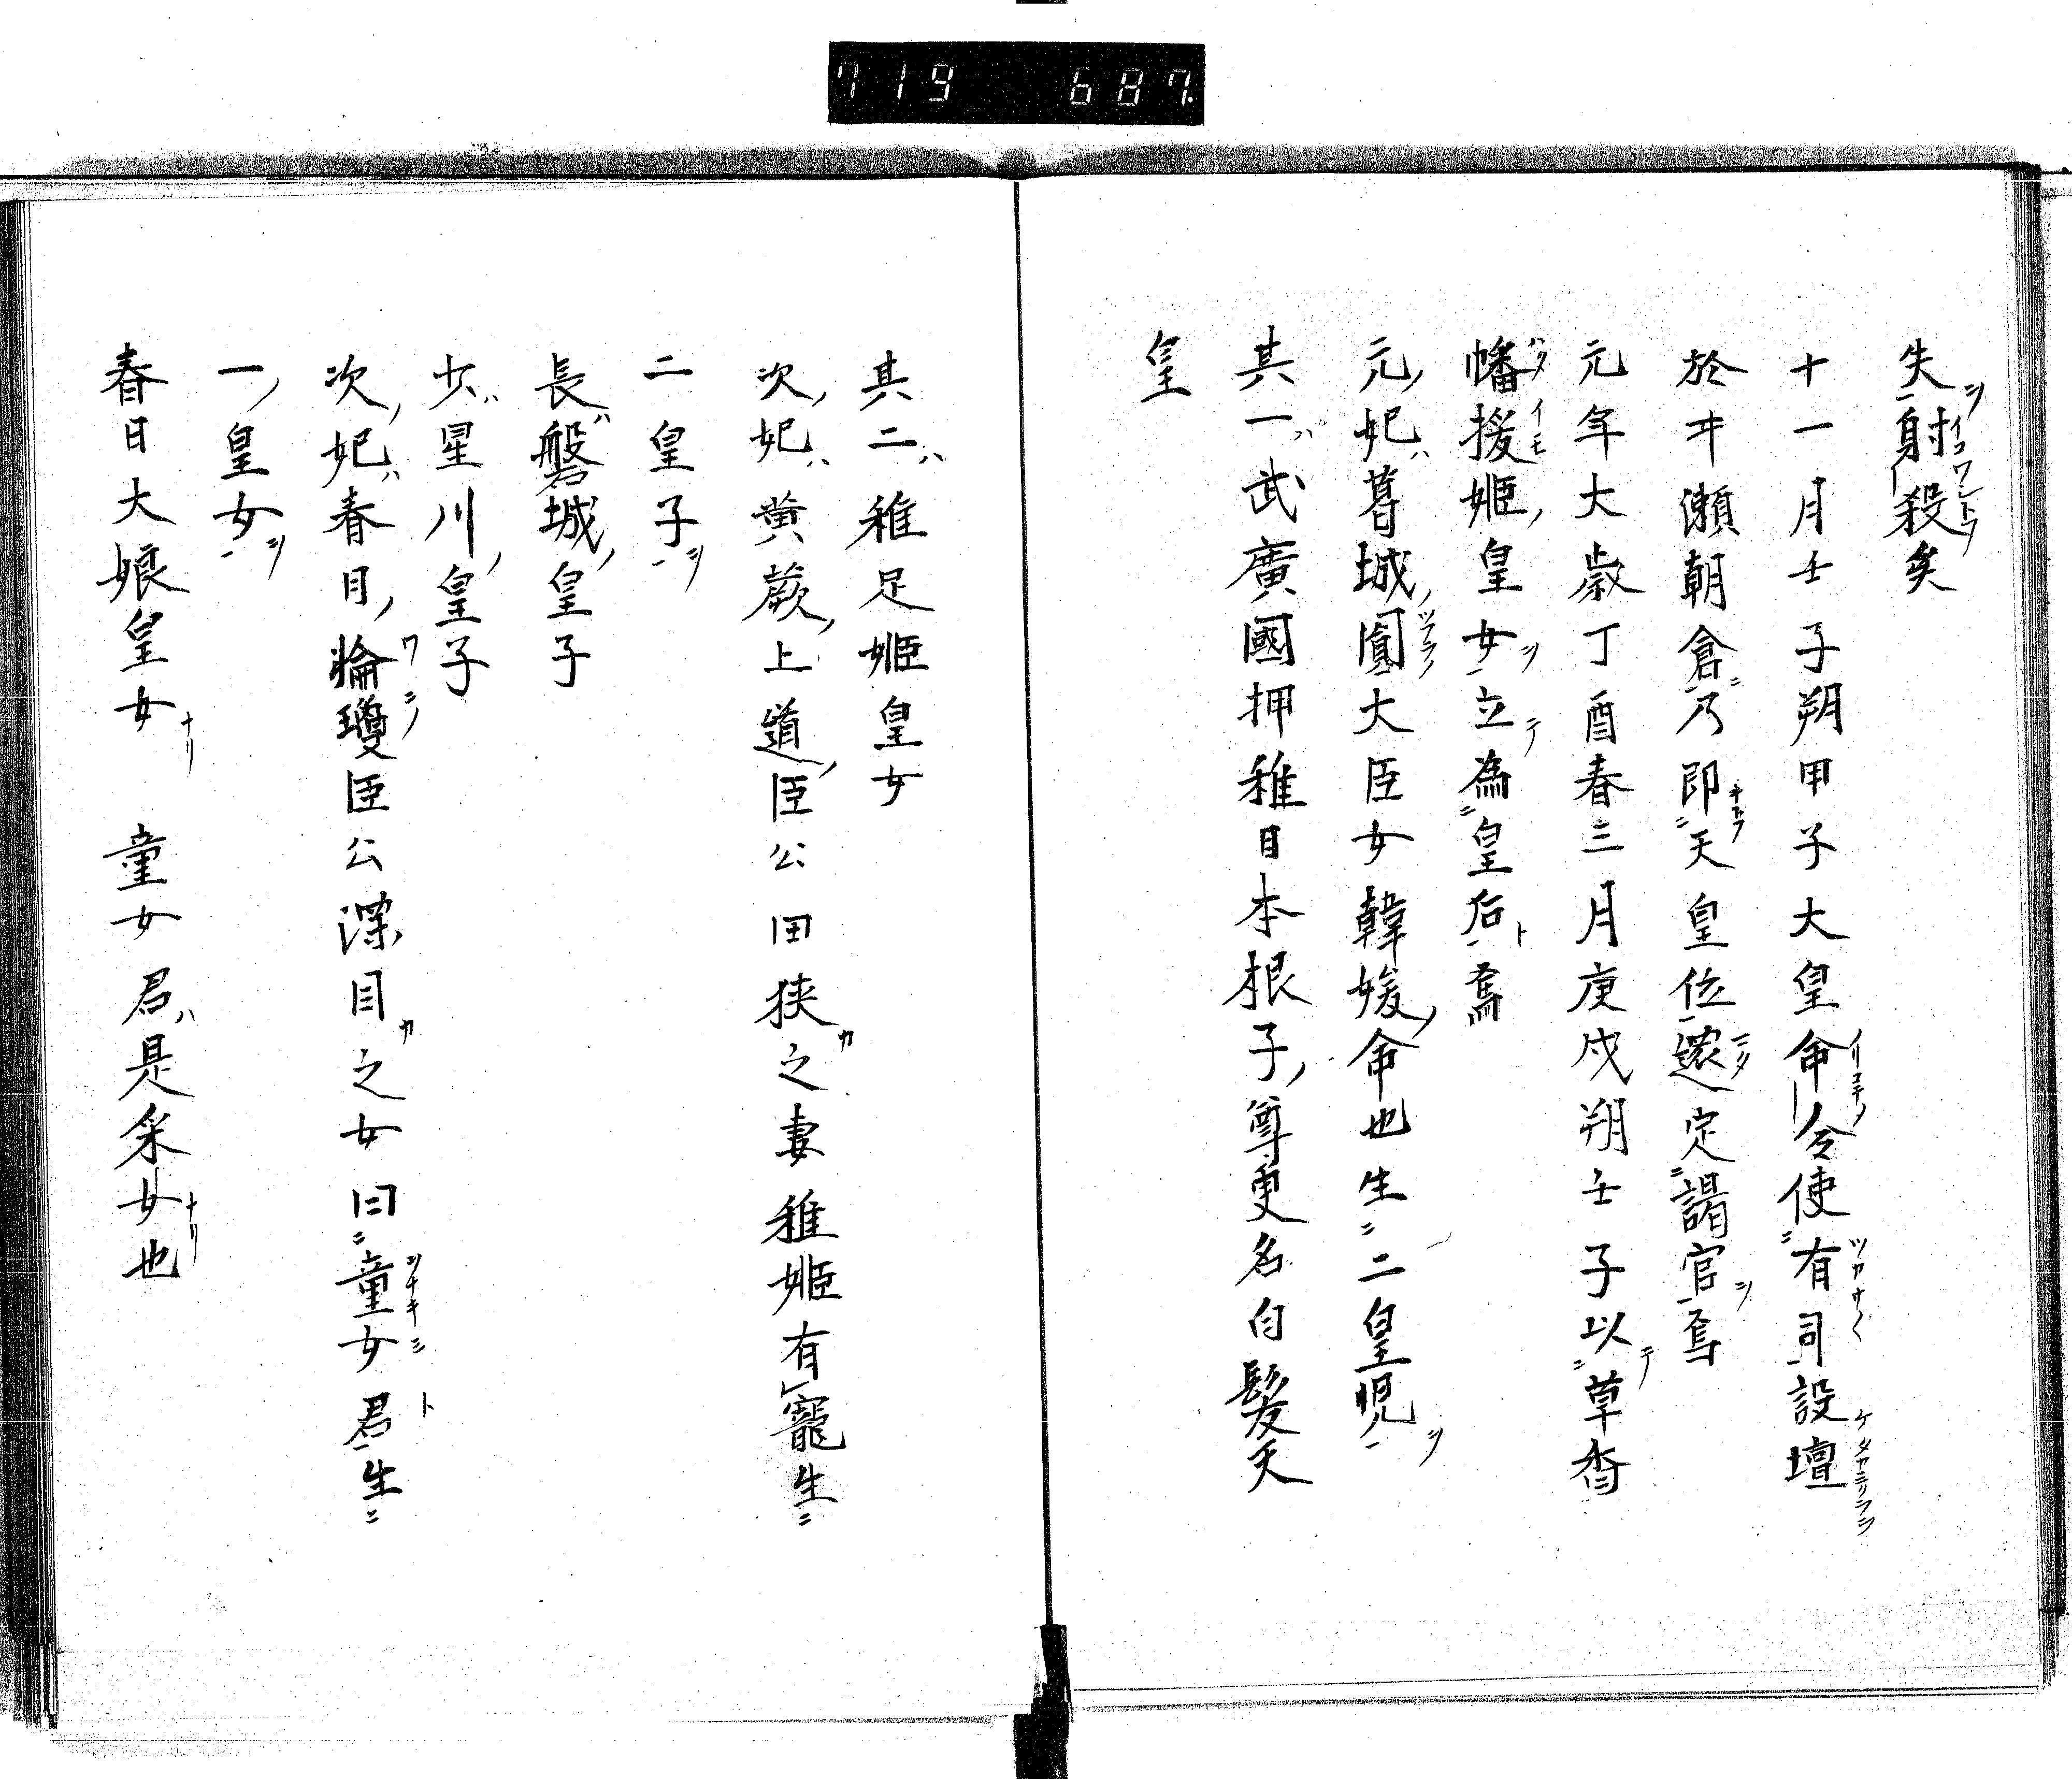 719 687.
失射殺矣
十一月壬子朔甲子大皇命令使有司設壇
於㐧瀬朝倉乃即天皇位遂定謁官焉
元年大歳丁酉春三月庚戌朔壬子以草香
幡援姫皇女立為皇后焉
元妃葛城圓大臣女韓媛命也生二皇児
其一武廣國押稚日本根子尊更名白髮天
皇
其二稚足姫皇女
次妃黄蕨上道臣公田狭之妻稚姫有寵生
二皇子
長磐城皇子
少星川皇子
次妃春日臣公深目之女曰童女君生
一皇女
春日大娘皇女 童女君是采女也